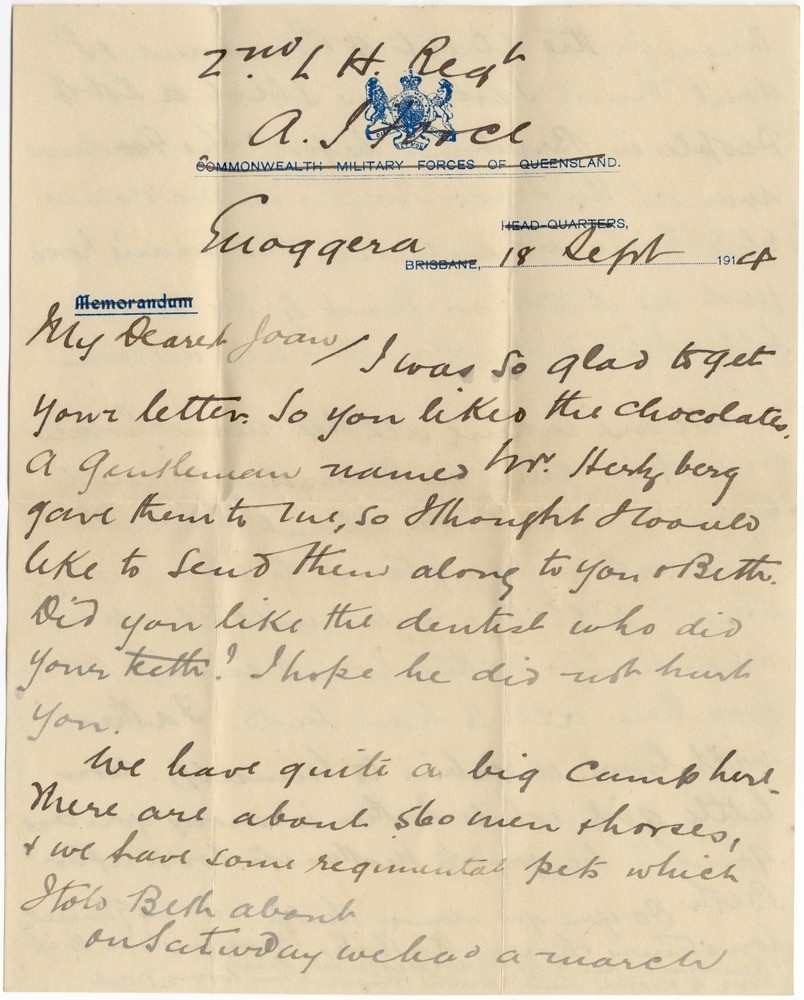 2nd L H. Regt
A. I Force
COMMONWEALTH MILITARY FORCES OF QUEENSLAND.
HEAD-QUARTERS,
Enoggera
BRISBANE, 18 Sept 1914
Memorandum
My Dearest Joan / I was so glad to get
your letter. So you liked the chocolates.
A Gentleman named Mr. Hertzberg
gave them to me, so I thought I would
like to send them along to you & Beth.
Did you like the dentist who did
your teeth? I hope he did not hurt
you.
We have quite a big camp here.
There are about 560 men & horses,
& we have some regimental pets which
I told Beth about
on Saturday we had a march